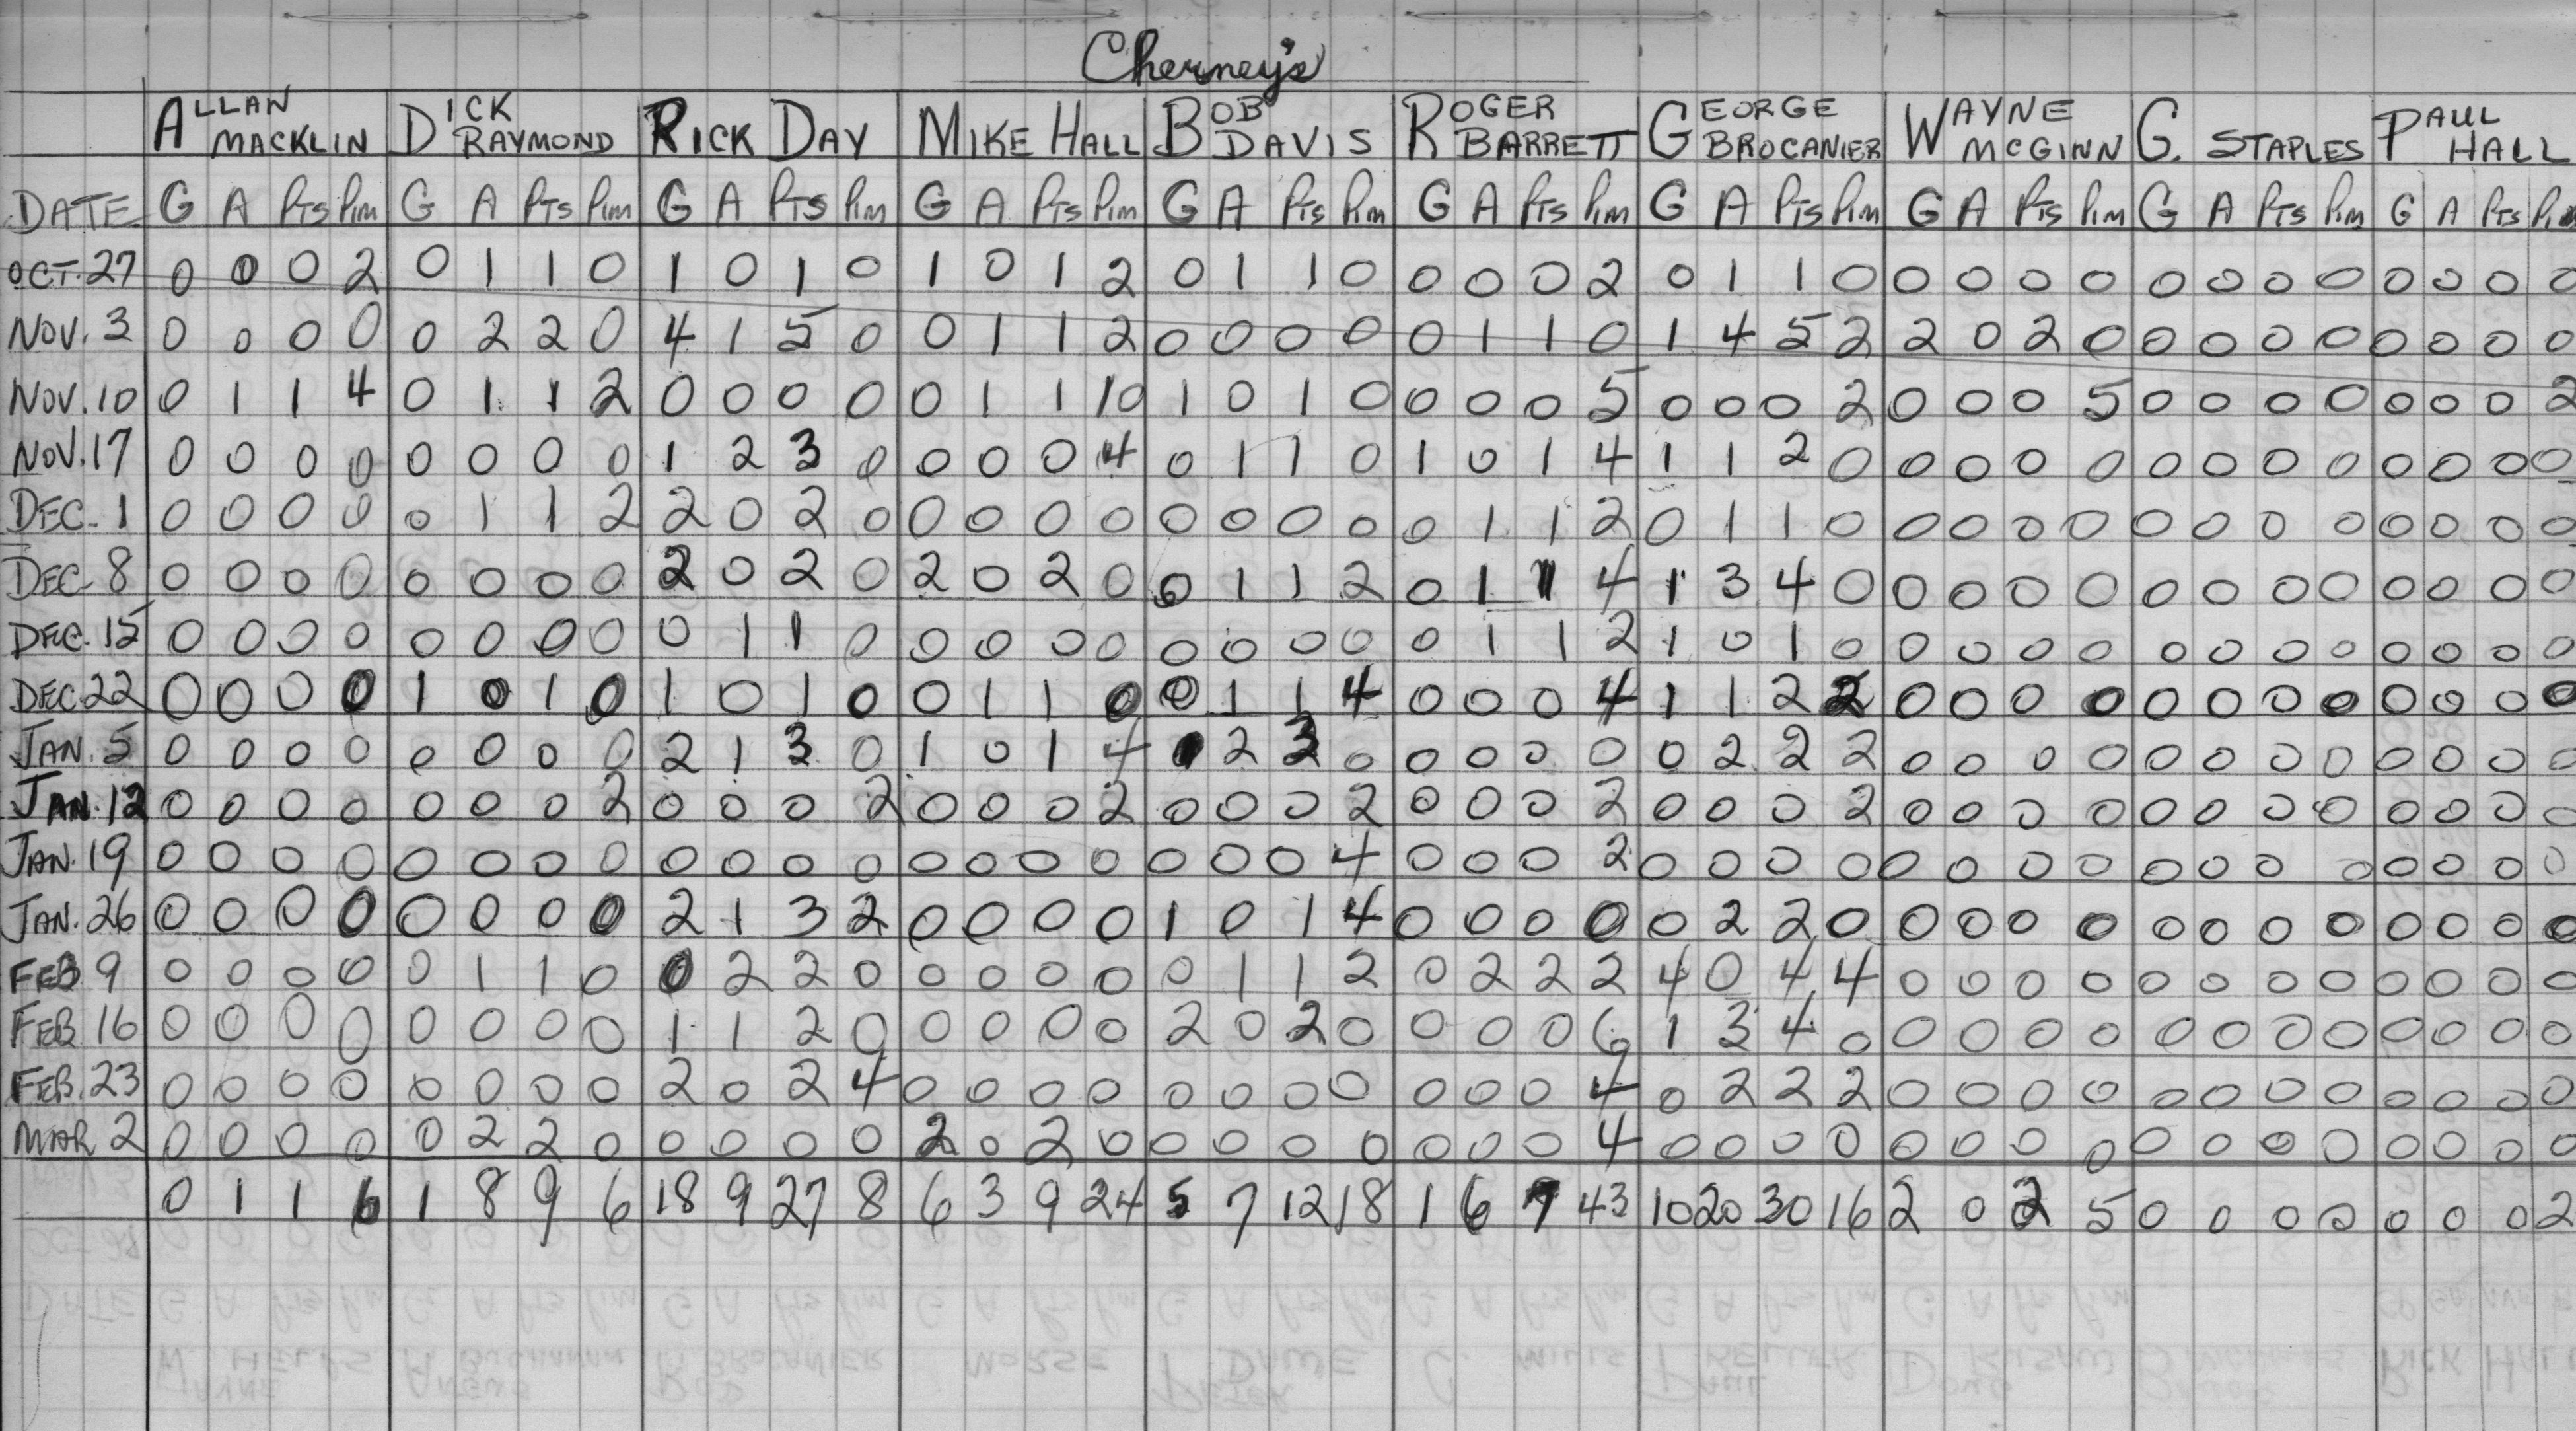 Cherney's
ALLAN MACKLIN DICK RAYMOND RICK DAY MIKE HALL BOB DAVIS ROGER BARRETT GEORGE BROCANIER WAYNE MCGINN G. STAPLES PAUL HALL
DATE G A PTS PIM G A PTS PIM G A PTS PIM G A PTS PIM G A PTS PIM G A PTS PIM G A PTS PIM G A PTS PIM G A PTS PIM G A PTS PIM
OCT. 27 0 0 0 2 0 1 1 0 1 0 1 0 1 0 1 2 0 1 1 0 0 0 0 2 0 1 1 0 0 0 0 0 0 0 0 0 0 0 0 0
NOV. 3 0 0 0 0 0 2 2 0 4 1 5 0 0 1 1 2 0 0 0 0 0 1 1 0 1 4 5 2 2 0 2 0 0 0 0 0 0 0 0 0
NOV. 10 0 1 1 4 0 1 1 2 0 0 0 0 0 1 1 10 1 0 1 0 0 0 0 5 0 0 0 2 0 0 0 5 0 0 0 0 0 0 0 2
NOV. 17 0 0 0 0 0 0 0 0 1 2 3 0 0 0 0 4 0 1 1 0 1 0 1 4 1 1 2 0 0 0 0 0 0 0 0 0 0 0 0 0
DEC. 1 0 0 0 0 0 1 1 2 2 0 2 0 0 0 0 0 0 0 0 0 0 1 1 2 0 1 1 0 0 0 0 0 0 0 0 0 0 0 0 0
DEC. 8 0 0 0 0 0 0 0 0 2 0 2 0 2 0 2 0 0 1 1 2 0 1 1 4 1 3 4 0 0 0 0 0 0 0 0 0 0 0 0 0
DEC. 15 0 0 0 0 0 0 0 0 0 1 1 0 0 0 0 0 0 0 0 0 0 1 1 2 1 0 1 0 0 0 0 0 0 0 0 0 0 0 0 0
DEC 22 0 0 0 0 1 0 1 0 1 0 1 0 0 1 1 0 0 1 1 4 0 0 0 4 1 1 2 2 0 0 0 0 0 0 0 0 0 0 0 0
JAN. 5 0 0 0 0 0 0 0 0 2 1 3 0 1 0 1 4 2 3 0 0 0 0 0 0 2 2 2 0 0 0 0 0 0 0 0 0 0 0 0
JAN. 12 0 0 0 0 0 0 0 2 0 0 0 2 0 0 0 2 0 0 0 2 0 0 0 2 0 0 0 2 0 0 0 0 0 0 0 0 0 0 0 0
JAN. 19 0 0 0 0 0 0 0 0 0 0 0 0 0 0 0 0 0 0 0 4 0 0 0 2 0 0 0 0 0 0 0 0 0 0 0 0 0 0 0 0
JAN. 26 0 0 0 0 0 0 0 0 2 1 3 2 0 0 0 0 1 0 1 4 0 0 0 0 0 2 2 0 0 0 0 0 0 0 0 0 0 0 0 0
FEB 9 0 0 0 0 0 1 1 0 0 2 2 0 0 0 0 0 0 1 1 2 0 2 2 2 4 0 4 4 0 0 0 0 0 0 0 0 0 0 0 0
FEB 16 0 0 0 0 0 0 0 0 1 1 2 0 0 0 0 0 2 0 2 0 0 0 0 6 1 3 4 0 0 0 0 0 0 0 0 0 0 0 0 0
FEB. 23 0 0 0 0 0 0 0 0 2 0 2 4 0 0 0 0 0 0 0 0 0 0 0 4 0 2 2 2 0 0 0 0 0 0 0 0 0 0 0 0
MAR 2 0 0 0 0 0 2 2 0 0 0 0 0 2 0 2 0 0 0 0 0 0 0 0 4 0 0 0 0 0 0 0 0 0 0 0 0 0 0 0 0
0 1 1 6 1 8 9 6 18 9 27 8 6 3 9 24 5 7 12 18 1 6 7 43 10 20 30 16 2 0 2 5 0 0 0 0 0 0 0 2